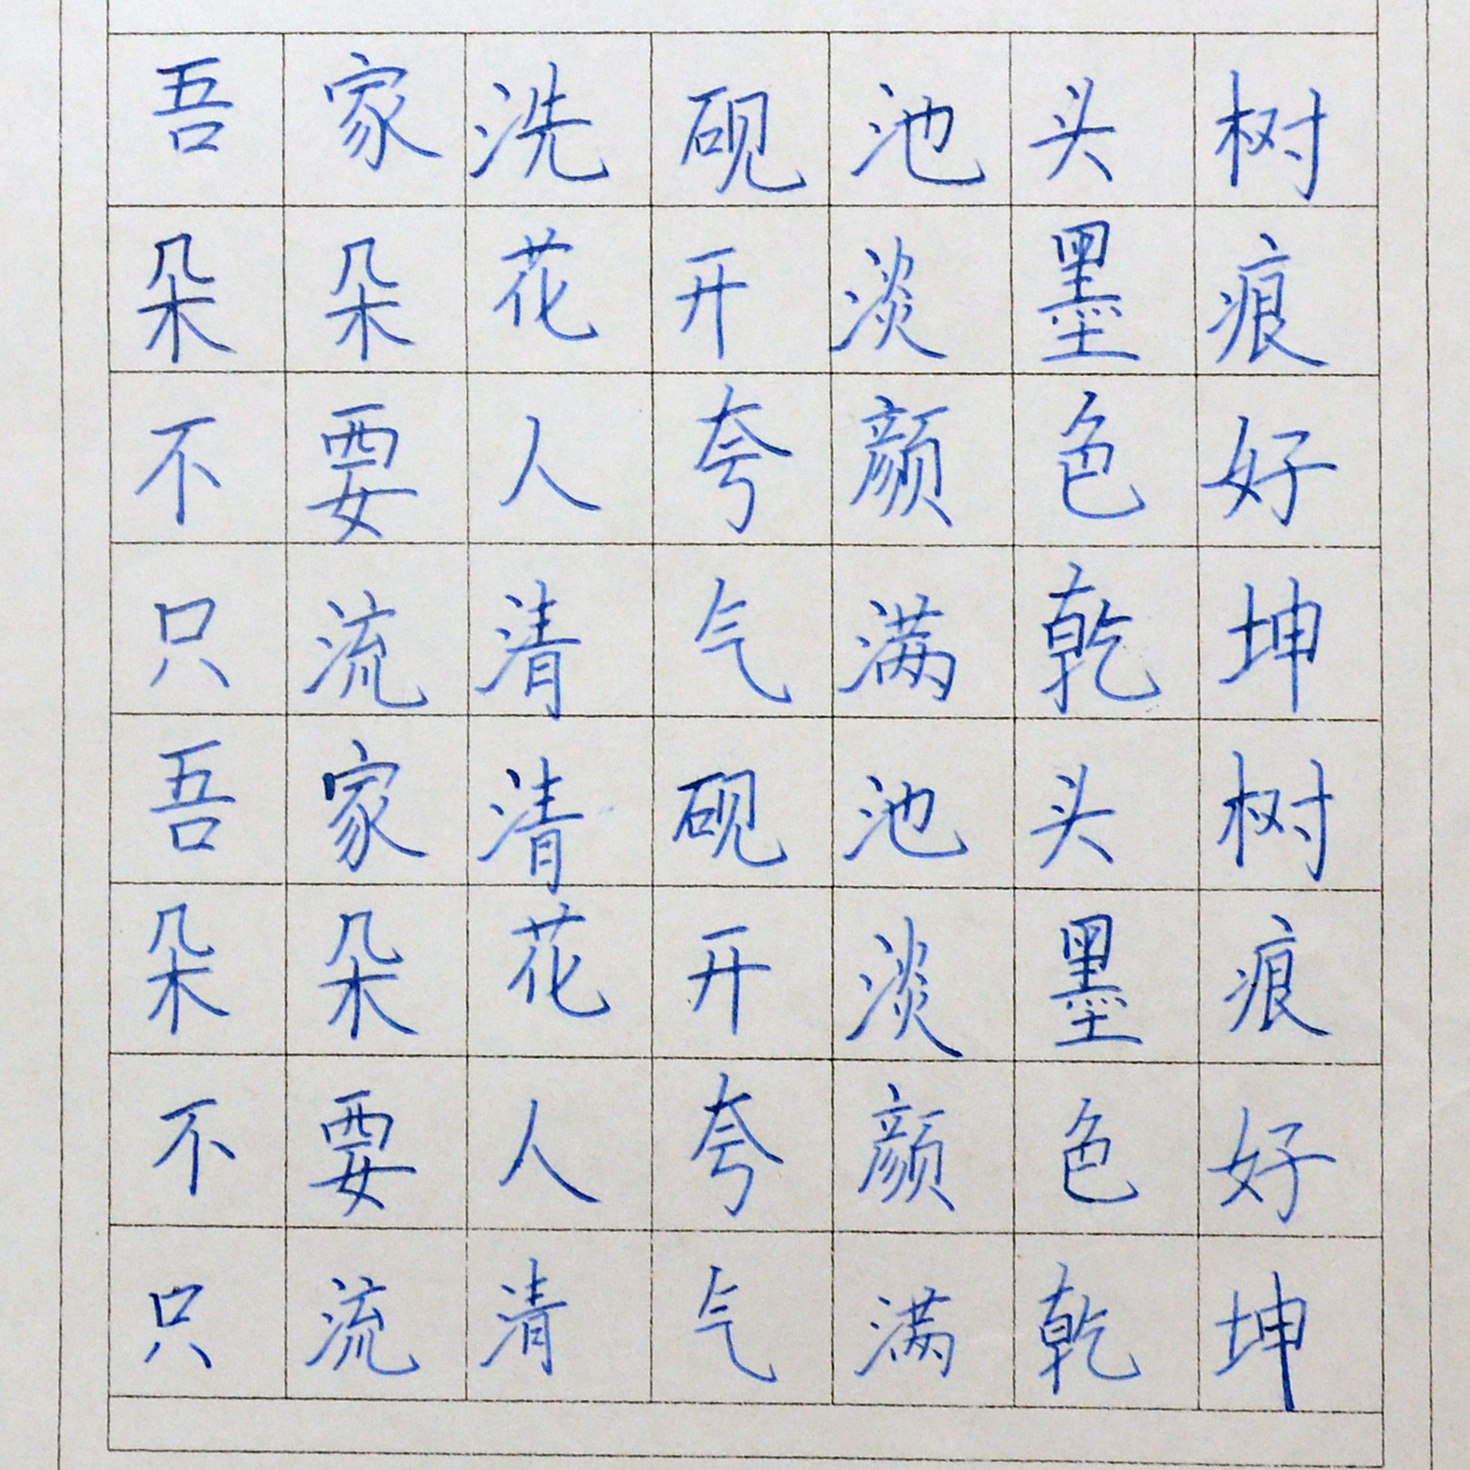 吾家洗砚池头树
朵朵花开淡墨痕
不要人夸颜色好
只流清气满乾坤
吾家清砚池头树
朵朵花开淡墨痕
不要人夸颜色好
只流清气满乾坤